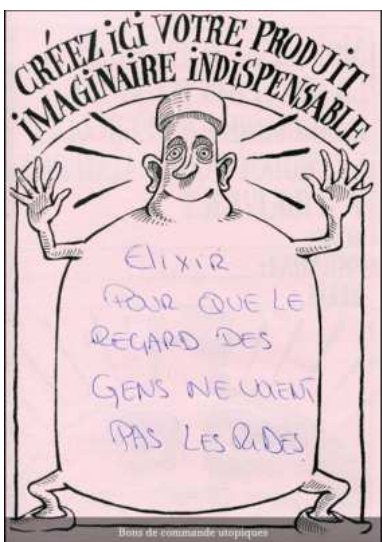 CRÉEZ iCi VOTRE PRODUiT
iMAGiNAIRE iNDiSPENSABLE
ELIXIR
POUR QUE LE
REGARD DES
GENS NE VOIENT
PAS LES RIDES
Bons de commande utopiques